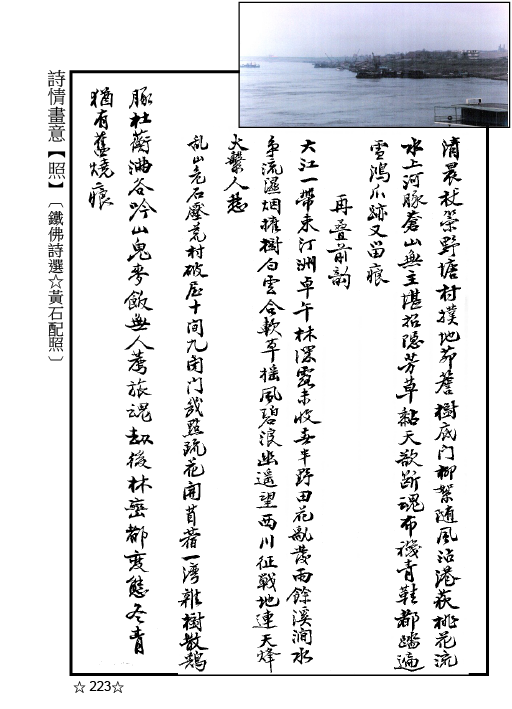 清晨杖策野塘村撲地茆簷樹底门柳絮随風沾港荻桃花流
水上河豚蒼山無主堪招隐芳草黏天欲断魂布襪青鞋都踏遍
雪鸿爪跡又留痕
再叠前韵
大江一帶束汀洲卓午林深露未收半野田花亂發雨餘溪涧水
争流濕烟擁樹白雲合軟草摇風碧浪幽遥望西川征戰地連天烽
火繫人愁
乱山危石壓荒村破屋十间九闭门點疏花開苜蓿一湾雜樹散
豚杜蘅幽谷吟山鬼麥飯無人薦旅魂劫後林巒都変態冬青
猶有舊燒痕
詩情畫意【照】〔鐵佛詩選☆黃石配照〕
☆ 223☆